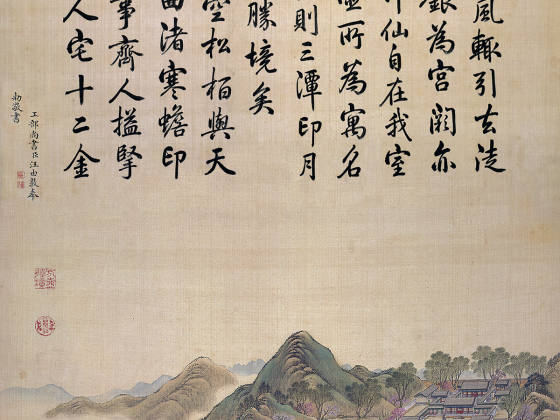 風輒引去徒
銀為宮闕亦
仙自在我室
壺所為寓名
則三潭印月
勝境矣
空松柏與天
曲渚寒蟾印
事齊人搤掔
人宅十二金
工部尚書臣汪由敦奉
勅敬書